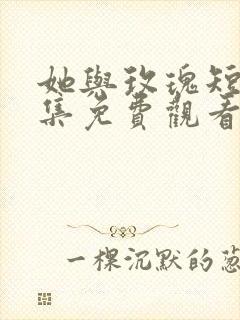 她與玫瑰短
集免費觀看
一棵沉默的蔥